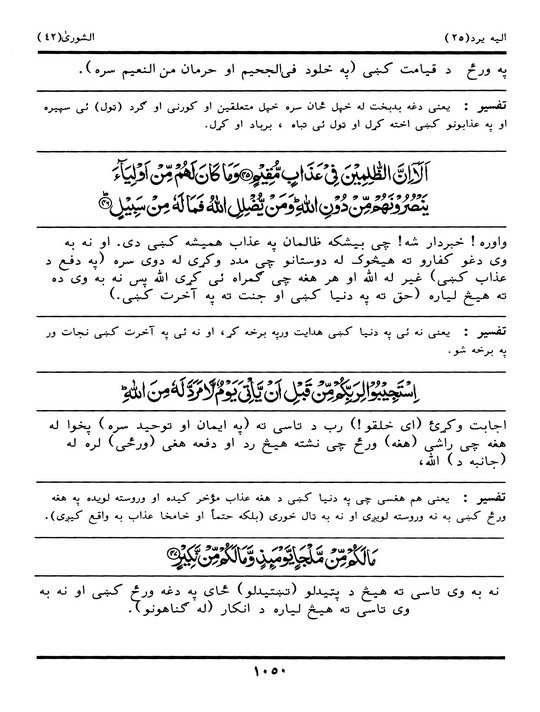 اليه يرد(٢٥) الشورىٰ(٤٢)
په ورځ د قيامت كښې (په خلود فى‌الجحيم او حرمان من النعيم سره).
تفسير : يعنى دغه بدبخت له خپل ځان سره خپل متعلقين او كورنى او گرد (ټول) ئې سپيره
او په عذابونو كښې اخته كړل او ټول ئې تباه ، برباد او كړل.
اَلَآ اِنَّ الظّٰلِمِيْنَ فِىْ عَذَابٍ مُّقِيْمٍ﴿٤٥﴾ وَمَا كَانَ لَهُمْ مِّنْ اَوْلِيَآءَ
يَنْصُرُوْنَهُمْ مِّنْ دُوْنِ اللّٰهِؕ وَمَنْ يُّضْلِلِ اللّٰهُ فَمَا لَهٗ مِنْ سَبِيْلٍؕ﴿٤٦﴾
واوره ! خبردار شه! چې بيشكه ظالمان په عذاب هميشه كښې دى. او نه به
وى دغو كفارو ته هيڅوك له دوستانو چې مدد وكړى له دوى سره (په دفع د
عذاب كښې) غير له الله او هر هغه چې گمراه ئې كړى الله پس نه به وى ده
ته هيڅ لياره (حق ته په دنيا كښې او جنت ته په آخرت كښې.)
تفسير : يعنى نه ئې په دنيا كښې هدايت ورپه برخه كړ، او نه ئې په آخرت كښې نجات ور
په برخه شو.
اِسْتَجِيْبُوْا لِرَبِّكُمْ مِّنْ قَبْلِ اَنْ يَّاْتِىَ يَوْمٌ لَّا مَرَدَّ لَهٗ مِنَ اللّٰهِؕ
اجابت وكړئ (اى خلقو!) رب د تاسې ته (په ايمان او توحيد سره) پخوا له
هغه چې راشى (هغه) ورځ چې نشته هيڅ رد او دفعه هغى (ورځى) لره له
(جانبه د) الله،
تفسير : يعنى هم هغسې چې په دنيا كښې د هغه عذاب مؤخر كيده او وروسته لويده په هغه
ورځ كښې به نه وروسته لويږى او نه به ټال خورى (بلكه حتماً او خامخا عذاب به واقع كيږى).
مَا لَكُمْ مِّنْ مَّلْجَاٍ يَّوْمَئِذٍ وَّمَا لَكُمْ مِّنْ نَّكِيْرٍ﴿٤٧﴾
نه به وى تاسې ته هيڅ د پټيدلو (تښتيدلو) ځاى په دغه ورځ كښې او نه به
وى تاسې ته هيڅ لياره د انكار (له گناهونو).
١٠٥٠